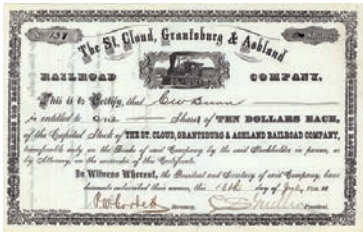 No 137
Shares
The St. Cloud, Grantsburg & Ashland
RAILROAD COMPANY.
This is to Certify, that
is entitled to one Shares of TEN DOLLARS EACH,
of the Capital Stock of THE ST. CLOUD, GRANTSBURG & ASHLAND RAILROAD COMPANY,
transferable only on the Books of said Company by the said Stockholder in person, or
by Attorney, on the surrender of this Certificate.
In Witness Whereof, the President and Secretary of said Company, have
hereunto subscribed their names, this day of July
Secretary. President.